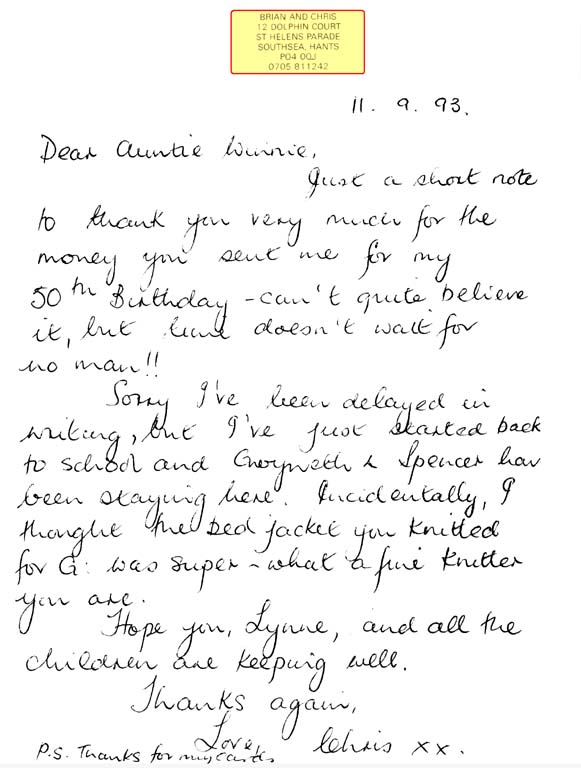 BRIAN AND CHRIS
12 DOLPHIN COURT
ST HELENS PARADE
SOUTHSEA, HANTS
PO4 0QJ
0705 811242
11. 9. 93.
Dear Auntie Winnie,
Just a short note
to thank you very much for the
money you sent me for my
50th Birthday - can't quite believe
it, but time doesn't wait for
no man!!
Sorry I've been delayed in
writing, but I've just started back
to school and Gwyneth & Spencer hav
been staying here. Incidentally, I
thought the bed jacket you knitted
for G. was super - what a fine knitter
you are.
Hope you, Lynne, and all the
children are keeping well.
Thanks again,
Love, Chris xx.
P.S. Thanks for my cards